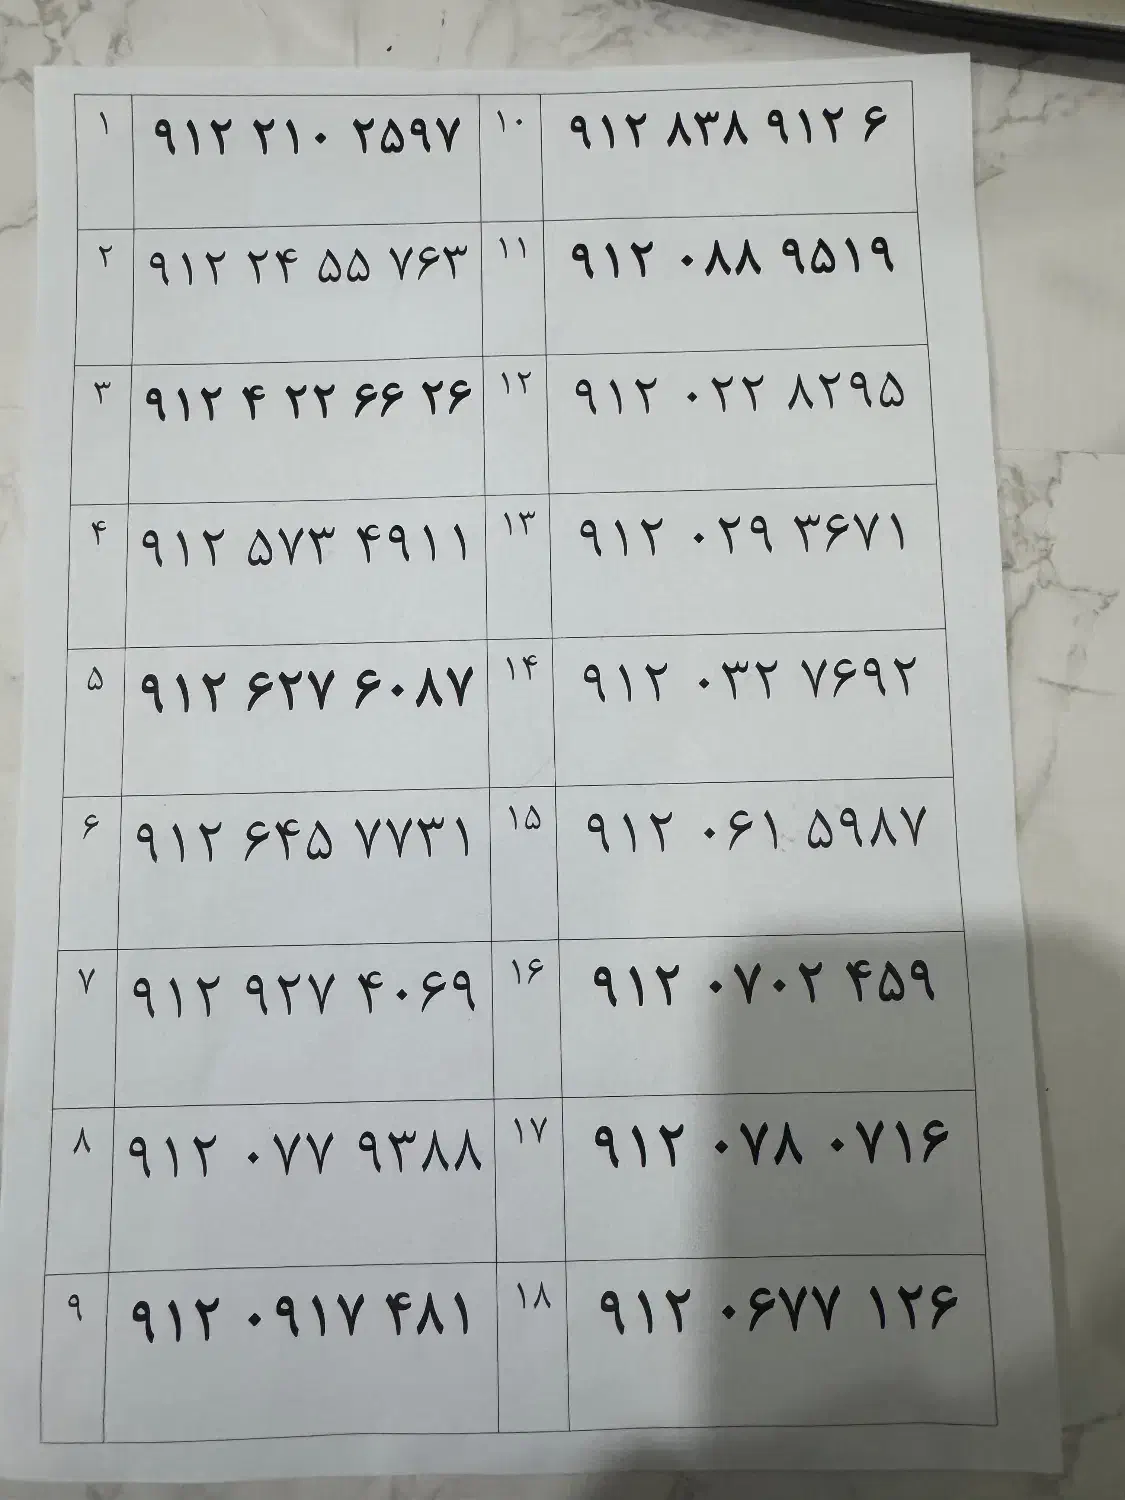 ۱ ۹۱۲ ۲۱۰ ۲۵۹۷
۲ ۹۱۲ ۲۴ ۵۵ ۷۶۳
۳ ۹۱۲ ۴ ۲۲ ۶۶ ۲۶
۴ ۹۱۲ ۵۷۳ ۴۹۱۱
۵ ۹۱۲ ۶۲۷ ۶۰۸۷
۶ ۹۱۲ ۶۴۵ ۷۷۳۱
۷ ۹۱۲ ۹۲۷ ۴۰۶۹
۸ ۹۱۲ ۰۷۷ ۹۳۸۸
۹ ۹۱۲ ۰۹۱۷ ۴۸۱
۱۰ ۹۱۲ ۸۳۸ ۹۱۲ ۶
۱۱ ۹۱۲ ۰۸۸ ۹۵۱۹
۱۲ ۹۱۲ ۰۲۲ ۸۲۹۵
۱۳ ۹۱۲ ۰۲۹ ۳۶۷۱
۱۴ ۹۱۲ ۰۳۲ ۷۶۹۲
۱۵ ۹۱۲ ۰۶۱ ۵۹۸۷
۱۶ ۹۱۲ ۰۷۰۲ ۴۵۹
۱۷ ۹۱۲ ۰۷۸ ۰۷۱۶
۱۸ ۹۱۲ ۰۶۷۷ ۱۲۶